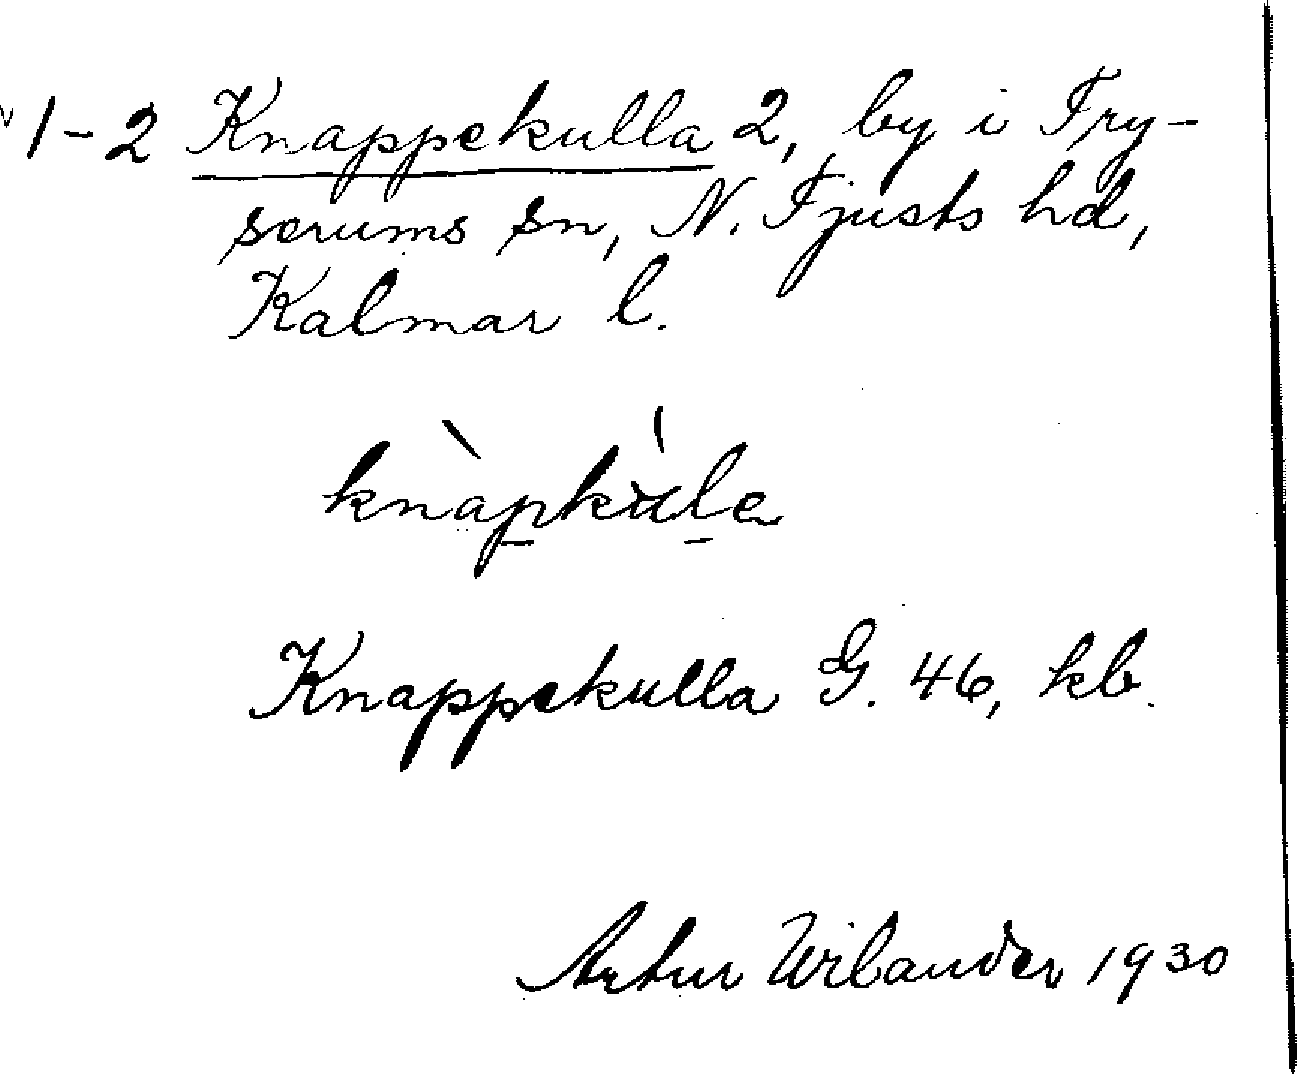 1-2 Knappekulla 2, by i Try-
serums sn, N. Tjusts hd,
Kalmar l.
knàpkúla
Knappekulla G. 46, kb.
Artur Wilander 1930